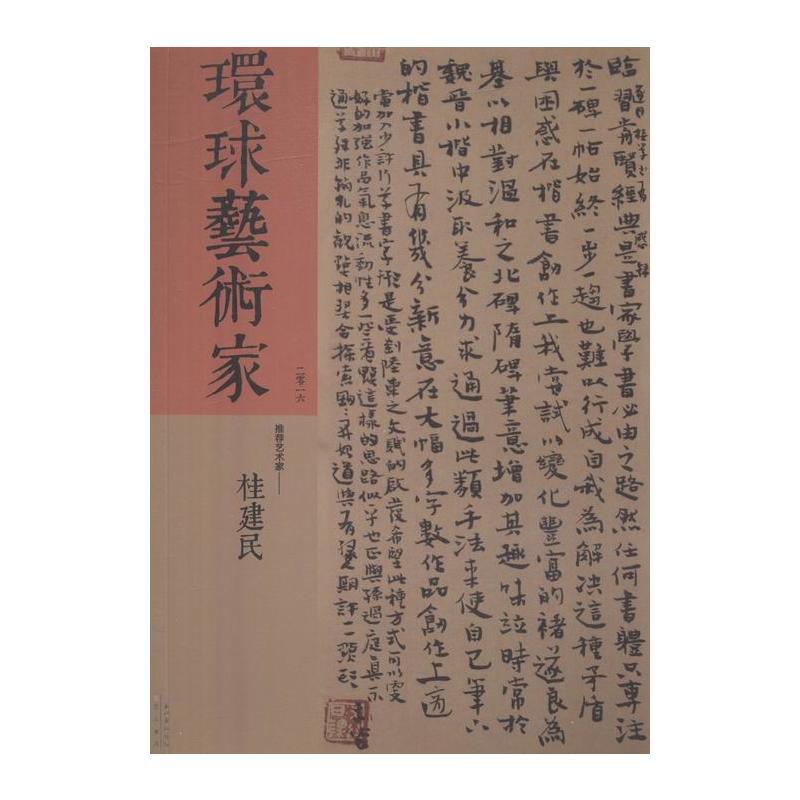 環球藝術家
二零一六
推荐艺术家——
桂建民
臨習前賢經典是書家學書必由之路然任何書體只專注
於一碑一帖始終一步一趨也難以行成自我為解決這種矛盾
與困惑在楷書創作上我嘗試以變化豐富的褚遂良為
基以相對溫和之北碑隋碑筆意增加其趣味並時常於
魏晉小楷中汲取養分力求通過此類手法來使自己筆下
的楷書具有幾分新意在大幅多字數作品創作上適
當加入少許行草書字形是受到陸柬之文賦的啟發希望此種方式可以更
好的加強作品氣息流動性多一些看點這樣的思路似乎也正與孫過庭真不
通草殊非翰札的觀點相契合探索